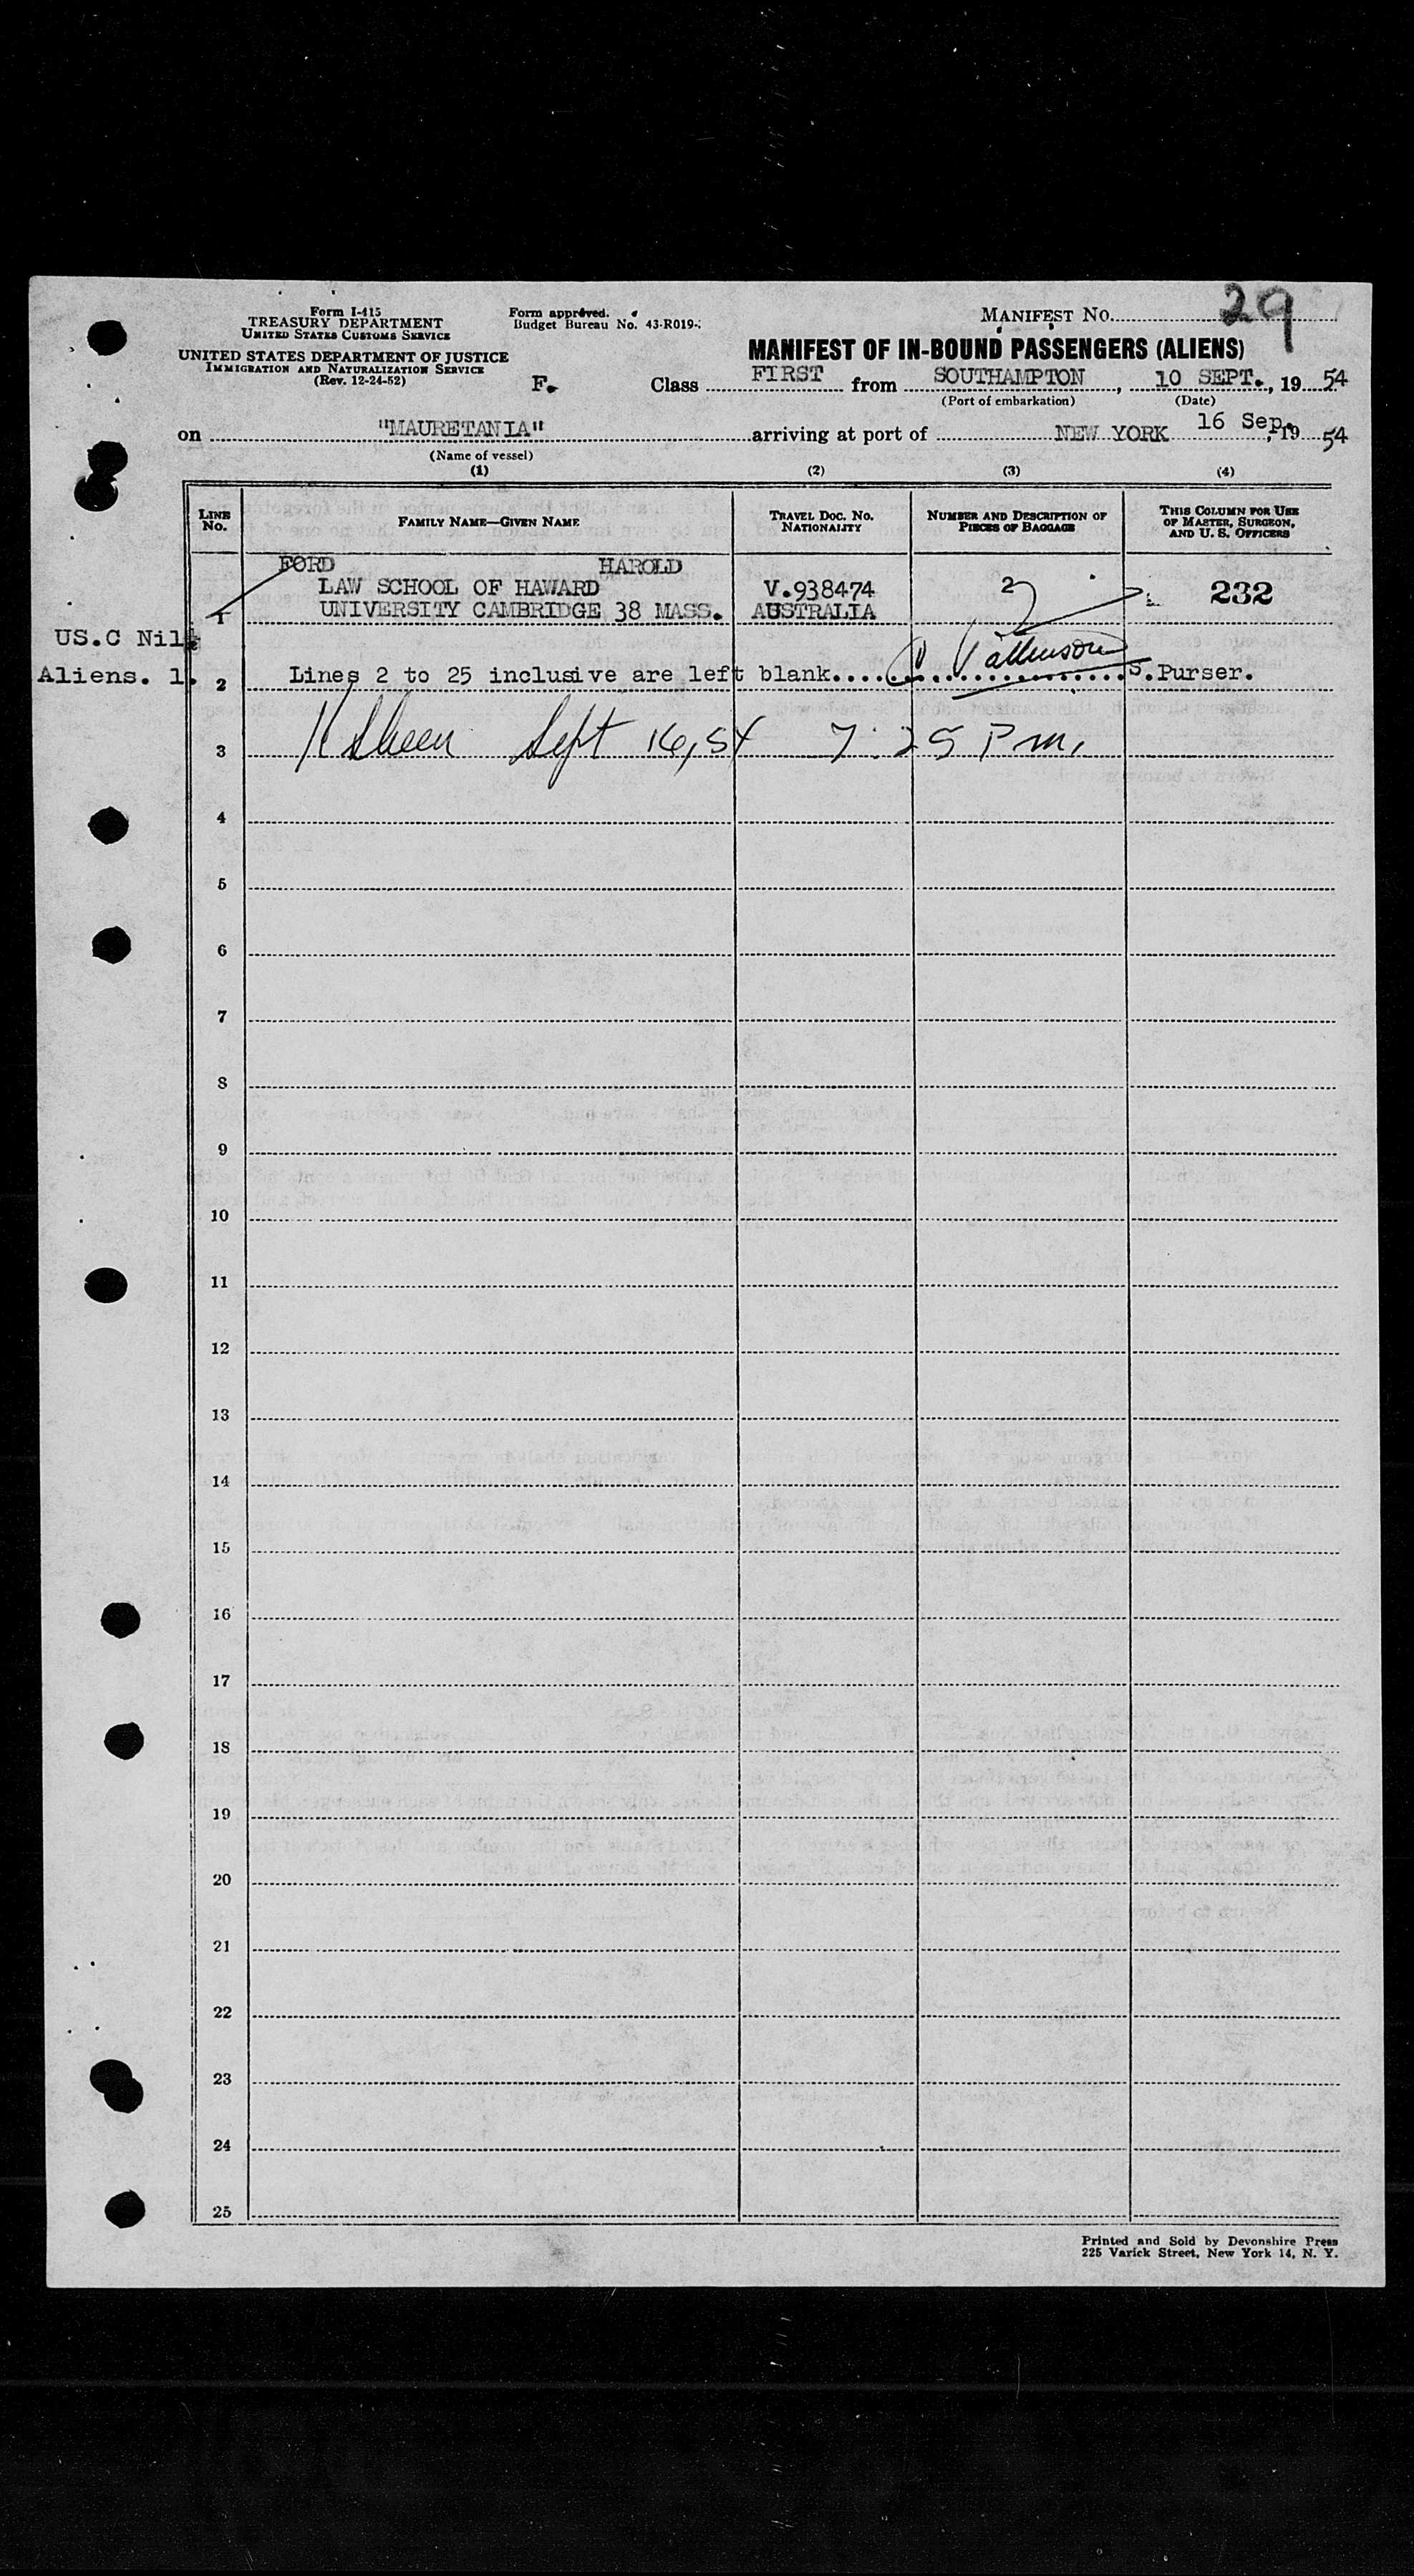 Form I-415
TREASURY DEPARTMENT
UNITED STATES CUSTOMS SERVICE
UNITED STATES DEPARTMENT OF JUSTICE
IMMIGRATION AND NATURALIZATION SERVICE
(Rev. 12-24-52)
Form approved.
Budget Bureau No. 43-R019-
MANIFEST No. 29
MANIFEST OF IN-BOUND PASSENGERS (ALIENS)
F. Class FIRST from SOUTHAMPTON, 10 SEPT., 19 54
(Port of embarkation) (Date)
on "MAURETANIA" arriving at port of NEW YORK 16 Sep., 19 54
(Name of vessel)
(1) (2) (3) (4)
LINE No. FAMILY NAME—GIVEN NAME TRAVEL DOC. No. NATIONALITY NUMBER AND DESCRIPTION OF PIECES OF BAGGAGE THIS COLUMN FOR USE OF MASTER, SURGEON, AND U. S. OFFICERS
FORD HAROLD
LAW SCHOOL OF HAWARD V.938474 2 232
1 UNIVERSITY CAMBRIDGE 38 MASS. AUSTRALIA
US.C Nil
Aliens. 1.
2 Lines 2 to 25 inclusive are left blank. S.Purser.
3 Sept 16, 54 7:25 P m.
4
5
6
7
8
9
10
11
12
13
14
15
16
17
18
19
20
21
22
23
24
25
Printed and Sold by Devonshire Press
225 Varick Street, New York 14, N. Y.